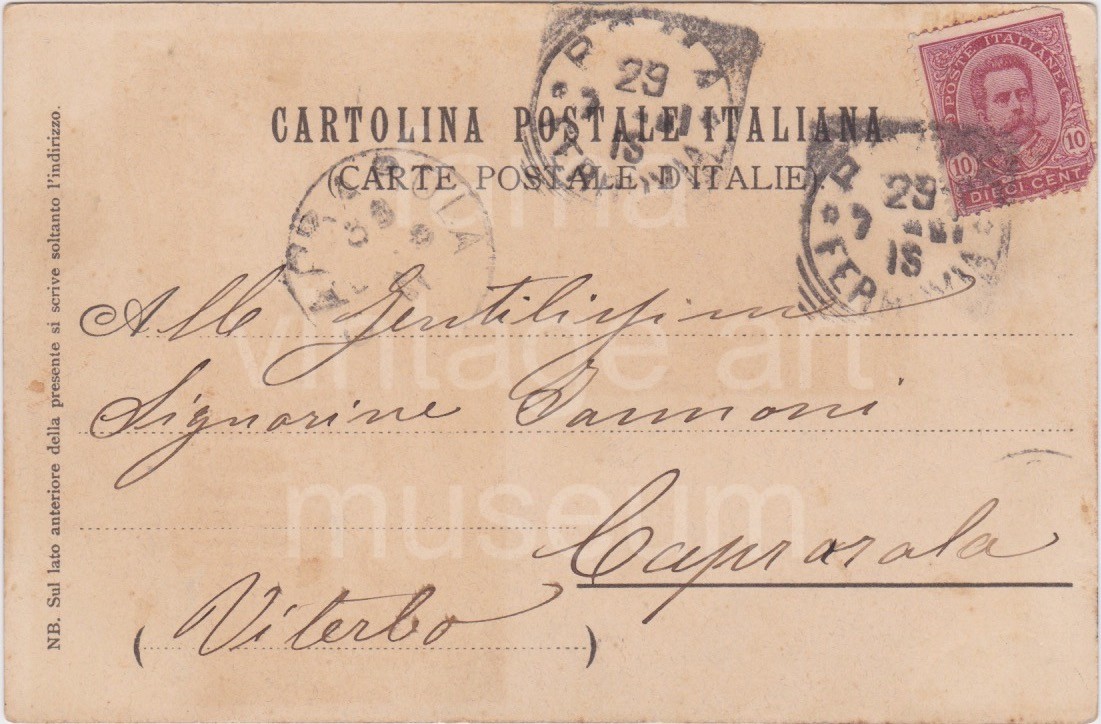 CARTOLINA POSTALE ITALIANA
(CARTE POSTALE D'ITALIE).
POSTE ITALIANE
10 10
DIECI CENT.
29
7
18
FERROVIA
29
7
18
FERROVIA
CAPRAROLA
Alle Gentilissime
Signorine
Caprarola
(Viterbo)
NB. Sul lato anteriore della presente si scrive soltanto l'indirizzo.
vintage art
museum